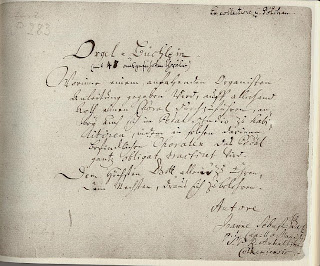 P 283
Orgel-Büchlein
Worinne einem anfahenden Organisten
Anleitung gegeben wird, auff allerhand
Arth einen Choral durchzuführen, an-
bey auch sich im Pedal studio zu habi-
litiren, indem in solchen darinne
befindlichen Choralen das Pedal
gantz obligat tractiret wird.
Dem Höchsten Gott allein zu Ehren,
Dem Nechsten, draus sich zu belehren.
Autore
Joanne Sebast. Bach
p. t. Capellæ Magistri
S. P. R. Anhaltini-
Cotheniensis